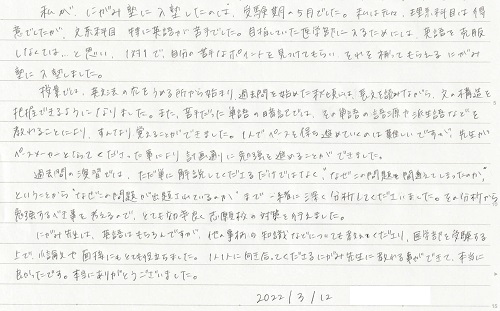 私が、にがみ塾に入塾したのは、受験期の5月でした。私はもともと理系科目は得
意でしたが、文系科目 特に英語が苦手でした。目指していた医学部に入るためには、英語を克服
しなくては…と思い、1対1で、自分の苦手なポイントを見つけてもらい、それを補ってもらえるにがみ
塾に入塾しました。
授業では、英文法の穴をうめる所から始まり、過去問を始めた秋頃には、長文を読みながら、文の構造を
把握できるようになりました。また、苦手だった単語の暗記では、その単語の語源や派生語などを
教わることにより、すんなり覚えることができました。1人でペースを保ち進めていくのは難しいですが、先生が
ペースメーカーとなってくださった事により計画通りに勉強を進めることができました。
過去問の演習では、ただ単に解説してくださるだけではなく"なぜこの問題を間違えてしまったのか"
ということから"なぜこの問題が出題されているのか"まで一緒に深く分析してくださいました。その分析から
勉強するべき事を考えるので、とても効率良く志望校の対策を行えました。
にがみ先生は、英語はもちろんですが、他の事柄の知識などについても教えてくださり、医学部を受験する
上で、小論文や面接にもとても役立ちました。1人1人に向き合ってくださるにがみ先生に教わる事ができて、本当に
良かったです。本当にありがとうございました。
2022/3/12